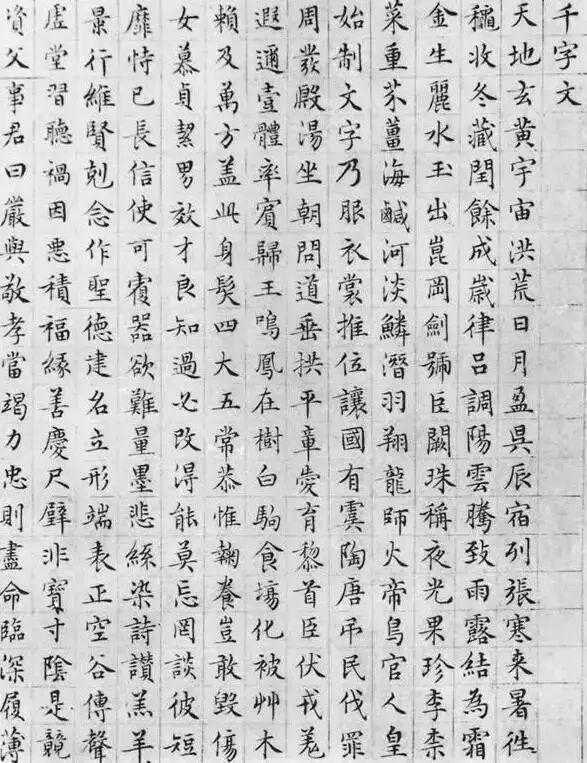 千字文
天地玄黃宇宙洪荒日月盈昃辰宿列張寒来暑徃
穐收冬藏閏餘成歳律呂調陽雲騰致雨露結為霜
金生麗水玉出崑岡劍號巨闕珠稱夜光果珍李柰
菜重芥薑海鹹河淡鱗潛羽翔龍師火帝鳥官人皇
始制文字乃服衣裳推位讓國有虞陶唐弔民伐罪
周發殷湯坐朝問道垂拱平章愛育黎首臣伏戎羌
遐邇壹體率賓歸王鳴鳳在樹白駒食場化被艸木
賴及萬方盖此身髮四大五常恭惟鞠養豈敢毀傷
女慕貞絜男效才良知過必改得能莫忘罔談彼短
靡恃己長信使可覆器欲難量墨悲絲染詩讚羔羊
景行維賢剋念作聖德建名立形端表正空谷傳聲
虛堂習聽禍因惡積福緣善慶尺璧非寶寸陰是競
資父事君曰嚴與敬孝當竭力忠則盡命臨深履薄